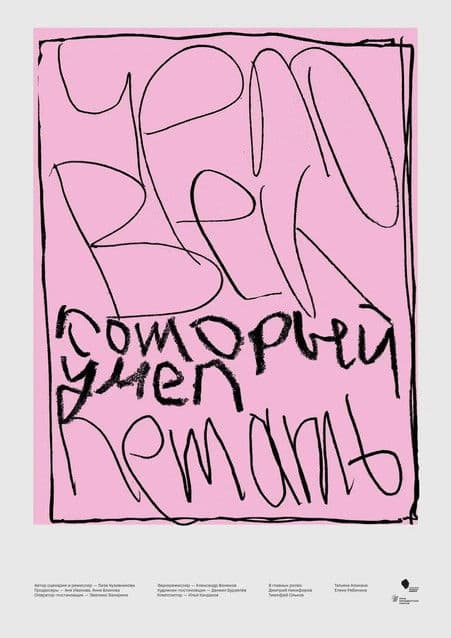 чело
век
который
умел
летать
Автор сценария и режиссер — Лиза
Продюсеры — Аня Иванова, Анна Блинова
Оператор-постановщик — Эвелина
Звукорежиссер — Александр
Художник-постановщик — Даниил
Композитор — Илья
В главных ролях:
Дмитрий Никифоров
Тимофей
Татьяна Аникина
Елена Рябинина